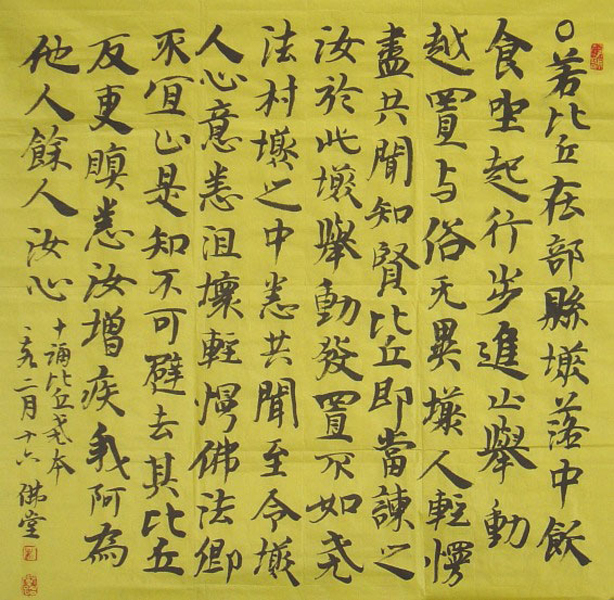 〇若比丘在部縣墩落中飲
食坐起行步進止舉動
越置与俗无異墩人輕慢
盡共聞知賢比丘即當諫之
汝於此墩舉動發置不如先
法村墩之中悉共聞至令墩
人心意悉沮壞輕慢佛法卿
不宜止是知不可避去其比丘
反更瞋恚汝增疾我阿為
他人餘人汝心
十誦比丘戒本
二月十六 佛堂